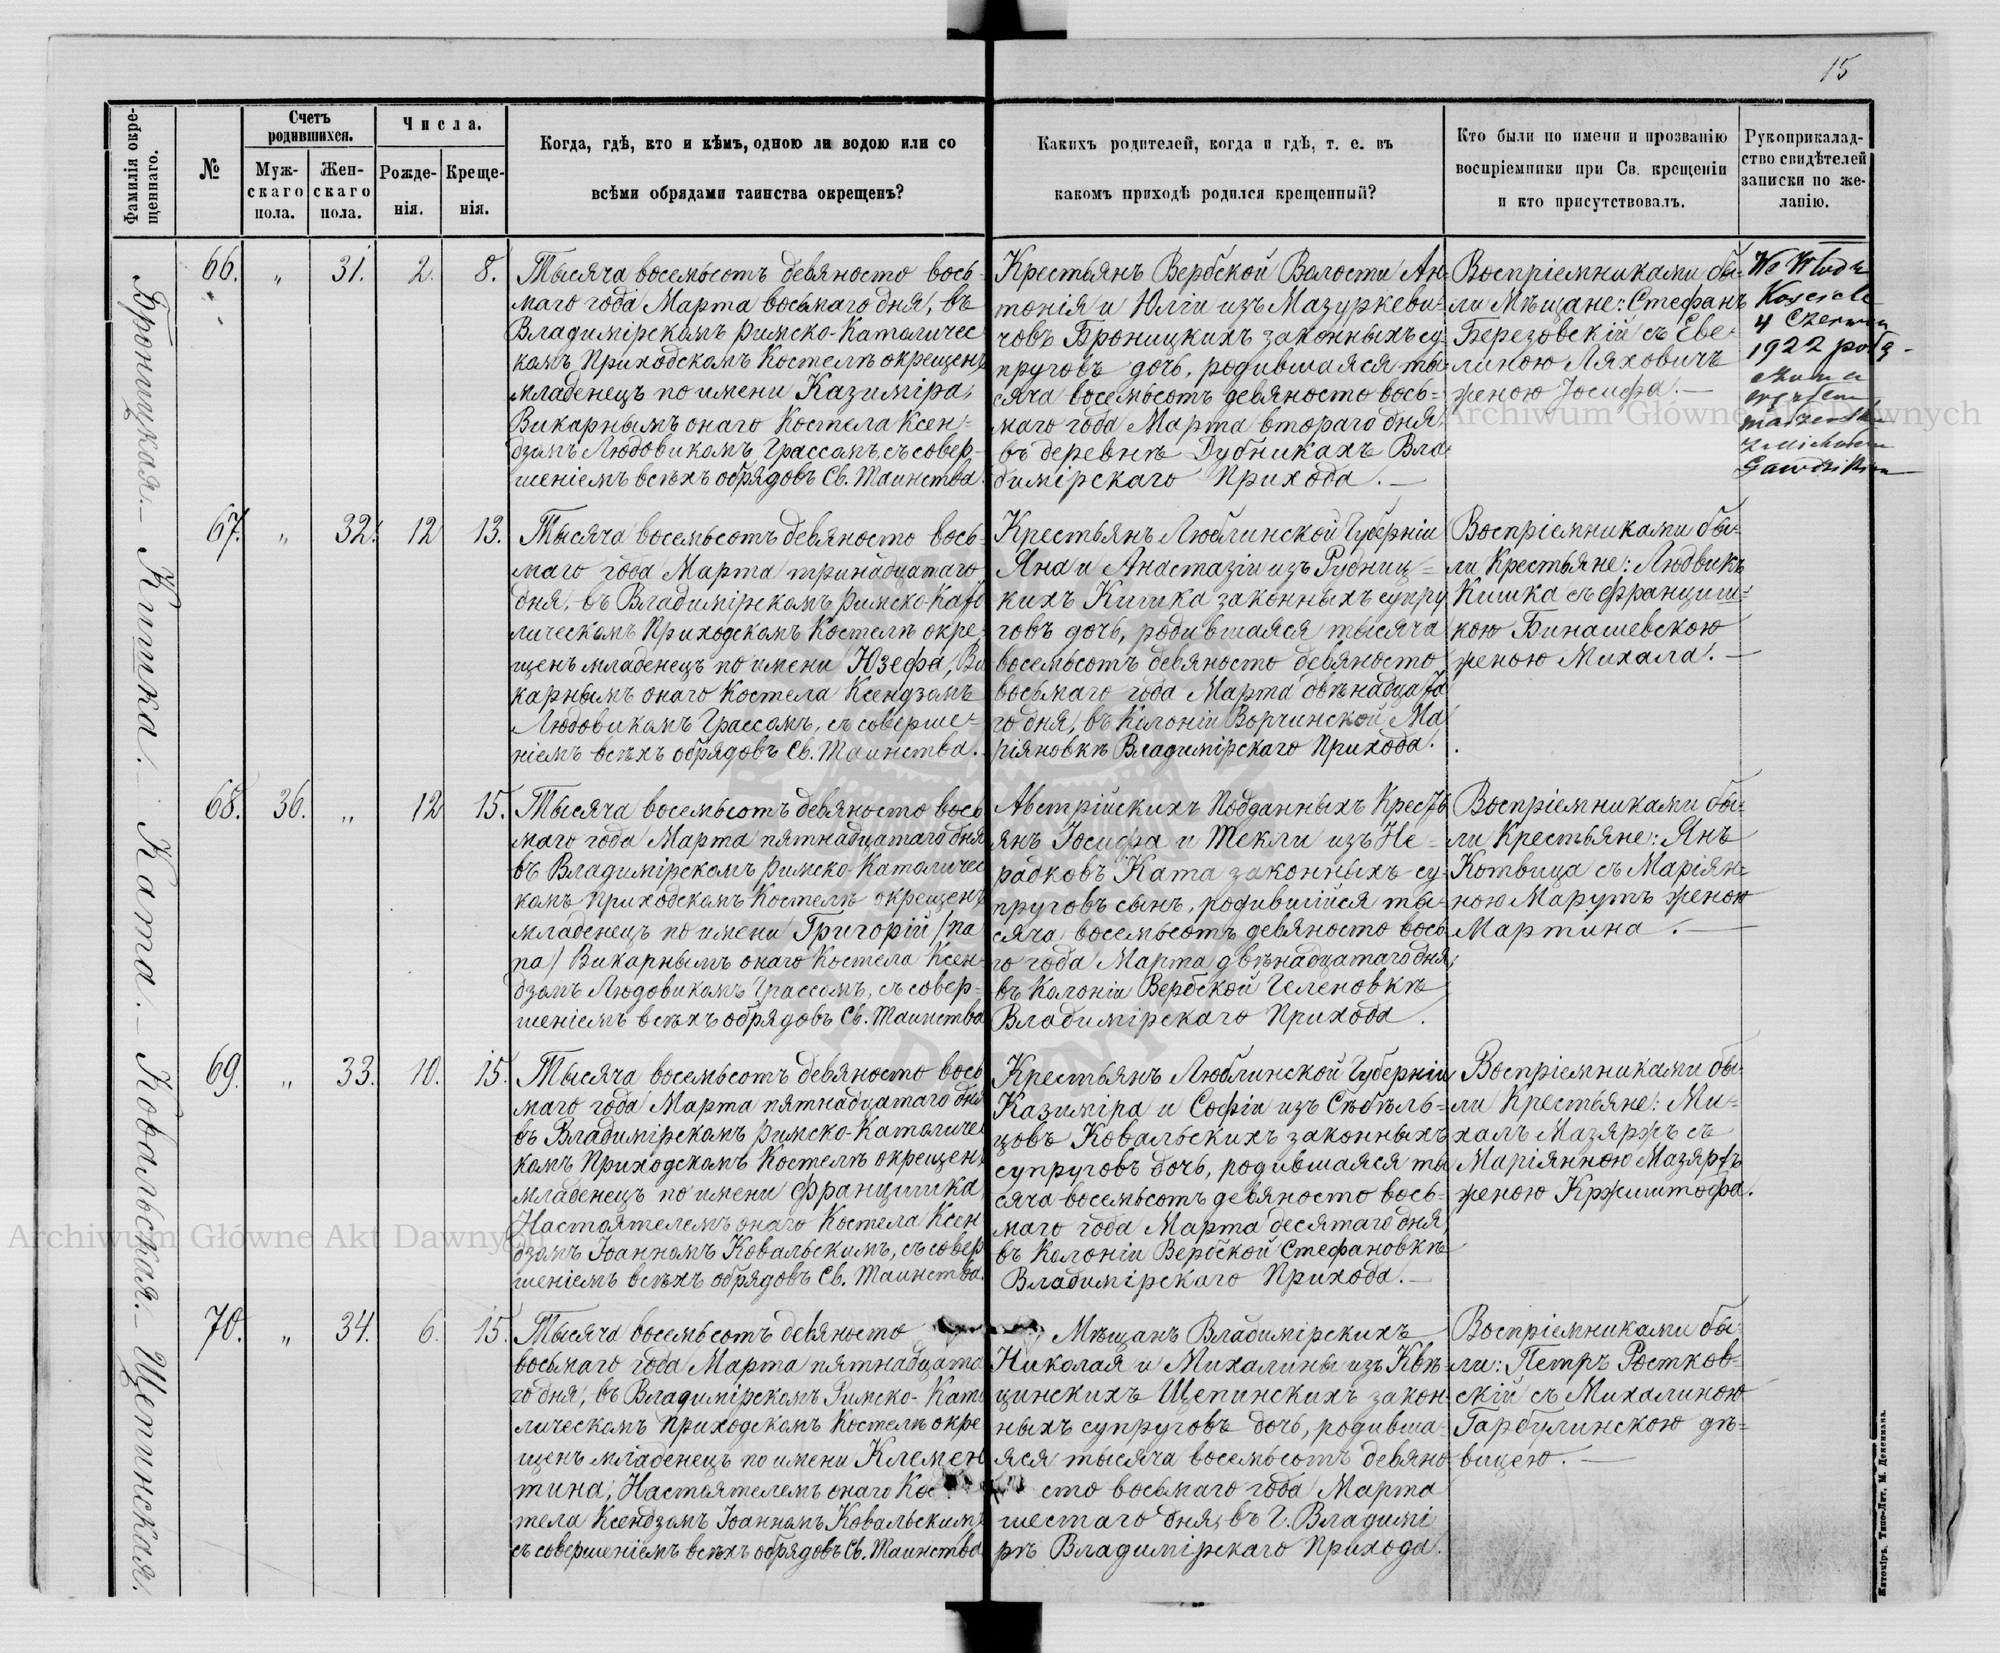 15
Фамилія окре-
щеннаго.
№
Счетъ
родившихся.
Муж-
скаго
пола.
Жен-
скаго
пола.
Числа.
Рожде-
нія.
Креще-
нія.
Когда, гдѣ, кто и кѣмъ, одною ли водою или со
всѣми обрядами таинства окрещенъ?
Какихъ родителей, когда и гдѣ, т. е. въ
какомъ приходѣ родился крещенный?
Кто были по имени и прозванію
воспріемники при Св. крещеніи
и кто присутствовалъ.
Рукоприкалад-
ство свидѣтелей
записки по же-
ланію.
Броницкая.
66. " 31. 2. 8.
Тысяча восемьсотъ девяносто вось-
маго года Марта восьмаго дня, въ
Владимірскомъ Римско-Католичес
комъ Приходскомъ Костелѣ окрещенъ
младенецъ по имени Казиміра,
Викарнымъ онаго Костела Ксен-
дзомъ Людовикомъ Грассомъ, съ совер-
шеніемъ всѣхъ обрядовъ Св. Таинства.
Крестьянъ Вербской Волости Ан-
тонія и Юлiи изъ Мазуркеви-
човъ Броницкихъ законныхъ су-
пруговъ дочь, родившаяся ты-
сяча восемьсотъ девяносто вось-
маго года Марта втораго дня,
въ деревнѣ Дубникахъ Вла-
димірскаго Прихода.
Воспріемниками бы-
ли Мѣщане: Стефанъ
Березовскій съ Еве-
линою Ляховичъ
женою Іосифа.
We Włodz
Kościele
4 Czerwca
1922 roku
Кишка.
67. " 32. 12 13.
Тысяча восемьсотъ девяносто вось-
маго года Марта тринадцатаго
дня, въ Владимірскомъ Римско-Като
лическомъ Приходскомъ Костелѣ окре-
щенъ младенецъ по имени Юзефа, Ви
карнымъ онаго Костела Ксендзомъ
Людовикомъ Грассомъ, съ соверше-
ніемъ всѣхъ обрядовъ Св. Таинства.
Крестьянъ Люблинской Губерніи
Яна и Анастазіи изъ Рудниц-
кихъ Кишка законныхъ супру
говъ дочь, родившаяся тысяча
восемьсотъ девяносто девяносто
восьмаго года Марта двѣнадцата
го дня, въ Колоніи Ворчинской Ма
ріяновкѣ Владимірскаго Прихода.
Воспріемниками бы-
ли Крестьяне: Людвикъ
Кишка съ Францииш-
кою Бинашевскою
женою Михала.
Ката.
68. 36. " 12 15.
Тысяча восемьсотъ девяносто вось
маго года Марта пятнадцатаго дня
въ Владимірскомъ Римско-Католичес
комъ Приходскомъ Костелѣ окрещенъ
младенецъ по имени Григорій /па
па/ Викарнымъ онаго Костела Ксен-
дзомъ Людовикомъ Грассомъ, съ совер-
шеніемъ всѣхъ обрядовъ Св. Таинства
Австрійскихъ Подданныхъ Кресть
янъ Іосифа и Текли изъ Не-
радковъ Ката законныхъ су-
пруговъ сынъ, родившійся ты-
сяча восемьсотъ девяносто вось
го года Марта двѣнадцатаго дня,
въ Колоніи Вербской Геленовкѣ
Владимірскаго Прихода.
Воспріемниками бы-
ли Крестьяне: Янъ
Котвица съ Маріян-
ною Марутъ женою
Мартина.
Ковальская.
69. " 33. 10. 15.
Тысяча восемьсотъ девяносто вось
маго года Марта пятнадцатаго дня
въ Владимірскомъ Римско-Католичес
комъ Приходскомъ Костелѣ окрещенъ
младенецъ по имени Францишка,
Настоятелемъ онаго Костела Ксен
дзомъ Іоанномъ Ковальскимъ, съ совер
шеніемъ всѣхъ обрядовъ Св. Таинства.
Крестьянъ Люблинской Губерніи
Казиміра и Софіи изъ Сѣбѣль-
цовъ Ковальскихъ законныхъ
супруговъ дочь, родившаяся ты
сяча восемьсотъ девяносто вось-
маго года Марта десятаго дня,
въ Колоніи Вербской Стефановкѣ
Владимірскаго Прихода.
Воспріемниками бы-
ли Крестьяне: Ми-
халъ Мазяржъ съ
Маріянною Мазяржъ
женою Кржиштофа.
Щепинская.
70. " 34. 6. 15.
Тысяча восемьсотъ девяносто
восьмаго года Марта пятнадцата
го дня, въ Владимірскомъ Римско-Като
лическомъ Приходскомъ Костелѣ окре
щенъ младенецъ по имени Клемен
тина, Настоятелемъ онаго Кос
тела Ксендзомъ Іоанномъ Ковальскимъ
съ совершеніемъ всѣхъ обрядовъ Св. Таинства
Мѣщанъ Владимірскихъ
Николая и Михалины изъ Квѣ-
цинскихъ Щепинскихъ закон-
ныхъ супруговъ дочь, родивша-
яся тысяча восемьсотъ девяно
сто восьмаго года Марта
шестаго дня, въ Г. Владимі
рѣ Владимірскаго Прихода.
Воспріемниками бы-
ли: Петръ Ростков-
скій съ Михалиною
Гарбулинскою дѣ-
вицею.
Житоміръ, Типо-Лит. М. Дененмана.
Archiwum Główne Akt Dawnych
Archiwum Główne Akt Dawnych